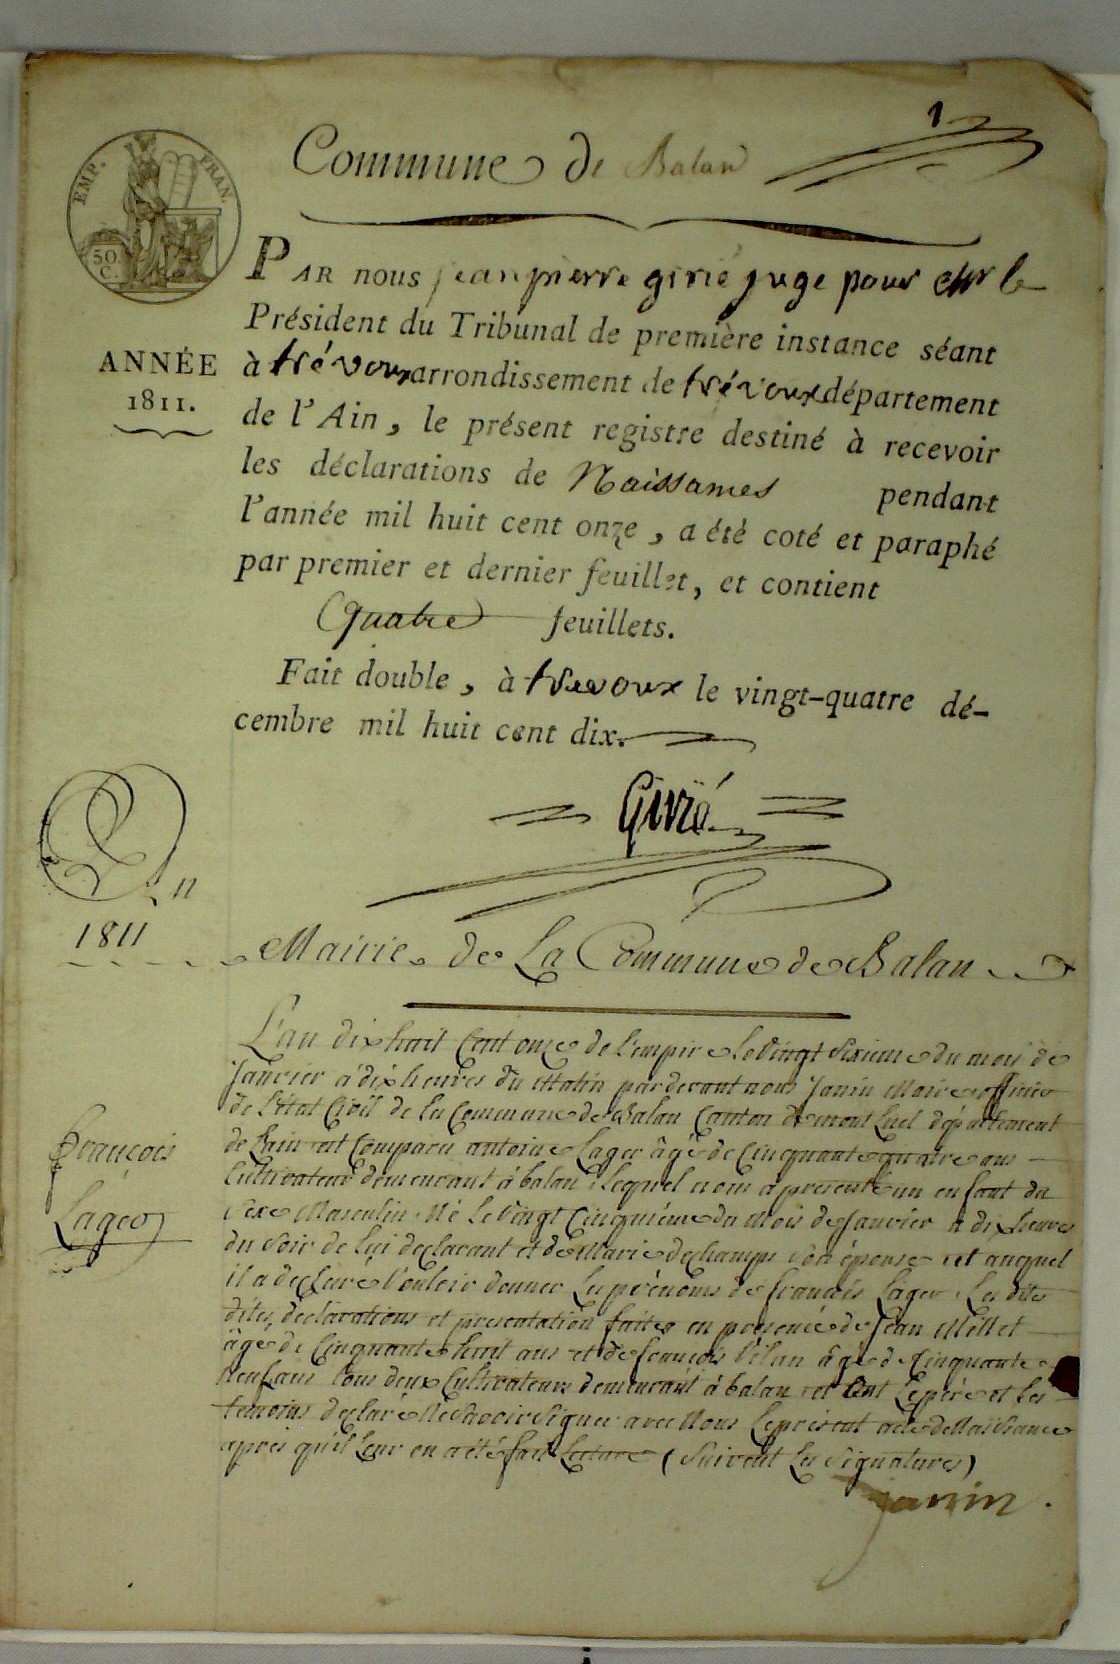 1
EMP. FRAN.
50 C.
Commune de Balan
PAR nous jean pierre givié juge pour le
Président du Tribunal de première instance séant
ANNÉE 1811.
à trévoux arrondissement de trévoux département
de l'Ain, le présent registre destiné à recevoir
les déclarations de Naissances pendant
l'année mil huit cent onze, a été coté et paraphé
par premier et dernier feuillet, et contient
Quatre feuillets.
Fait double, à trevoux le vingt-quatre dé-
cembre mil huit cent dix.
An
1811
Mairie de La Commune de Balan
L'an dix huit Cent onze de l'empire le Vingt Sixieme du mois de
Janvier à dix heures du Matin pardevant nous Janin Maire officier
de l'état Civil de la Commune de Balan Canton de mont Luel département
de l'ain est Comparu antoine Lager âgé de Cinquante quatre ans
Cultivateur demeurant à balan, lequel nous a presenté un enfant du
Sexe Masculin Né Le Vingt Cinquième du Mois de Janvier à dix heures
du Soir de Lui declarant et de Marie dechamps Son épouse et auquel
il a declaré Vouloir donner Les prénoms de françois Lager, Les dites
dites déclarations et presentation faites en presence de Jean Millet
âgé de Cinquante huit ans et de francois Vélan âgé de Cinquante
neuf ans tous deux Cultivateurs demeurant à balan et Ont Le père et Les
temoins declaré Ne Savoir Signer avec Nous Le présent acte de Naissance
apres qu'il Leur en a été fait Lecture (Suivent Les Signatures)
François
Lager
Janin